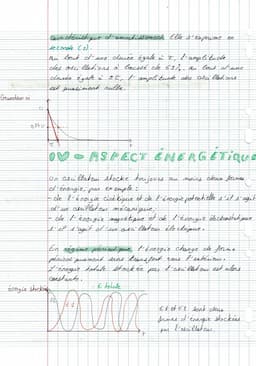 caractéristique d'amortissement. Elle s'exprime en
seconde (s).
Au bout d'une durée égale à τ, l'amplitude
des oscillations a baissé de 63%, au bout d'une
durée égale à 5τ, l'amplitude des oscillations
est quasiment nulle.
Grandeur
IV - ASPECT ÉNERGÉTIQUE
Un oscillateur stocke toujours au moins deux formes
d'énergie, par exemple :
- de l'énergie cinétique et de l'énergie potentielle s'il s'agit
d'un oscillateur mécanique.
- de l'énergie magnétique et de l'énergie électrostatique
s'il s'agit d'un oscillateur électrique.
En régime périodique, l'énergie change de forme
périodiquement sans transfert vers l'extérieur.
L'énergie totale stockée par l'oscillateur est alors
constante.
énergie stockée
E totale
E1 et E2 sont deux
formes d'énergie stockées
par l'oscillateur.